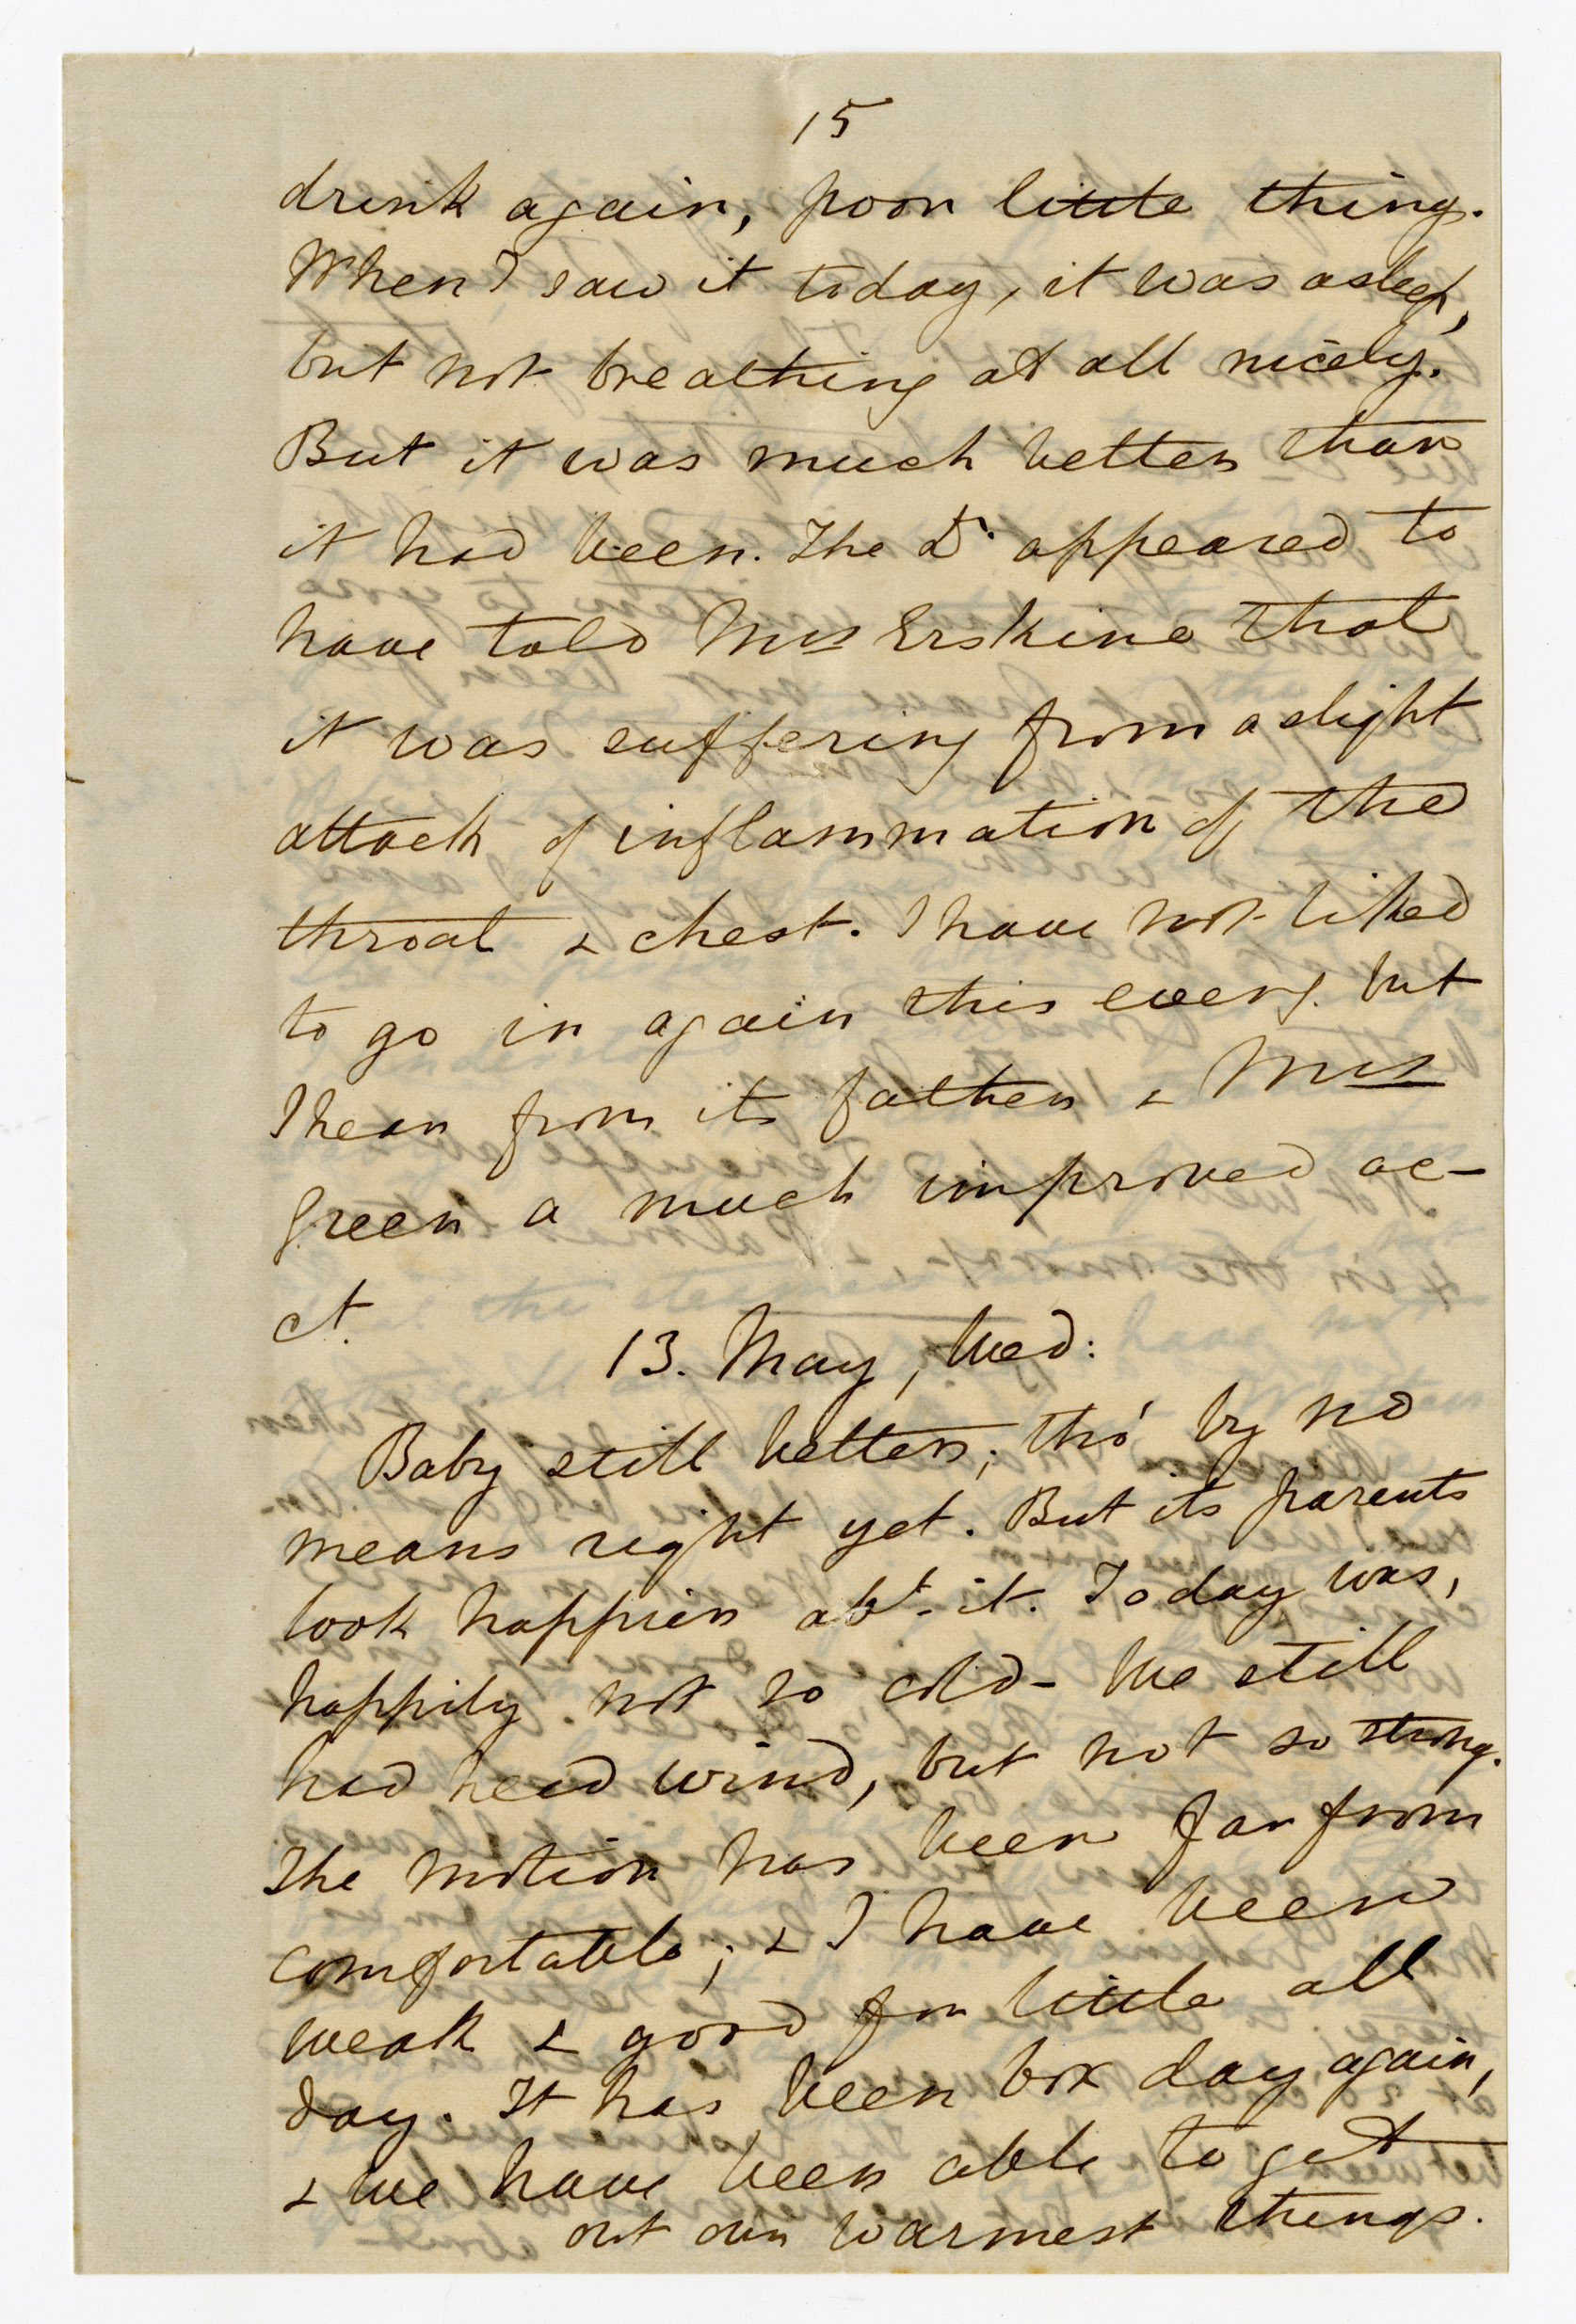 15
drink again, poor little thing.
When I saw it today, it was asleep,
but not breathing at all nicely.
But it was much better than
it had been. The Dr. appeared to
have told Mrs Erskine that
it was suffering from a slight
attack of inflammation of the
throat & chest. I have not liked
to go in again this eveng. but
I hear from its father & Mrs
Green a much improved ac-
ct.
13. May, Wed:
Baby still better; tho' by no
means right yet. But its parents
look happier abt. it. Today was,
happily not so cold - We still
had head wind, but not so strong.
The motion has been far from
comfortable; & I have been
weak & good for little all
day. It has been box day again,
& we have been able to get
out our warmest things.